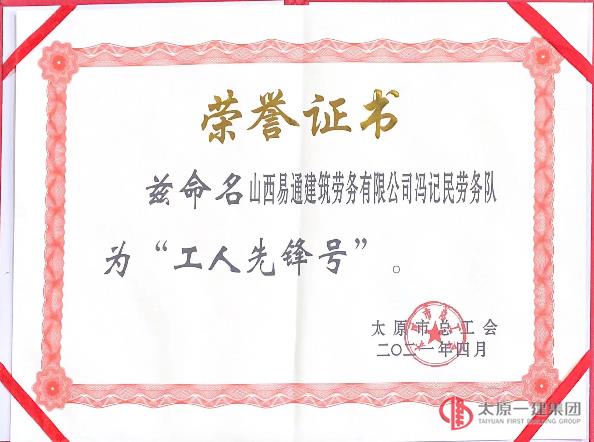 荣誉证书
兹命名山西易通建筑劳务有限公司冯记民劳务队
为“工人先锋号”。
太原市总工会
二〇二一年四月
太原市总工会
太原一建集团
TAIYUAN FIRST BUILDING GROUP